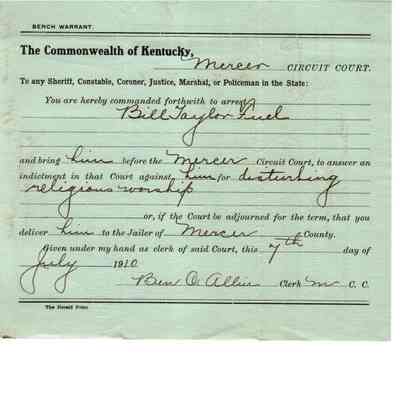 BENCH WARRANT.
The Commonwealth of Kentucky,
Mercer CIRCUIT COURT.
To any Sheriff, Constable, Coroner, Justice, Marshal, or Policeman in the State:
You are hereby commanded forthwith to arrest
Bill Taylor
and bring him before the Mercer Circuit Court, to answer an
indictment in that Court against him for disturbing
religious worship
or, if the Court be adjourned for the term, that you
deliver him to the Jailer of Mercer County.
Given under my hand as clerk of said Court, this 7th day of
July 1910
Ben O. Allin Clerk M C. C.
The Herald Print